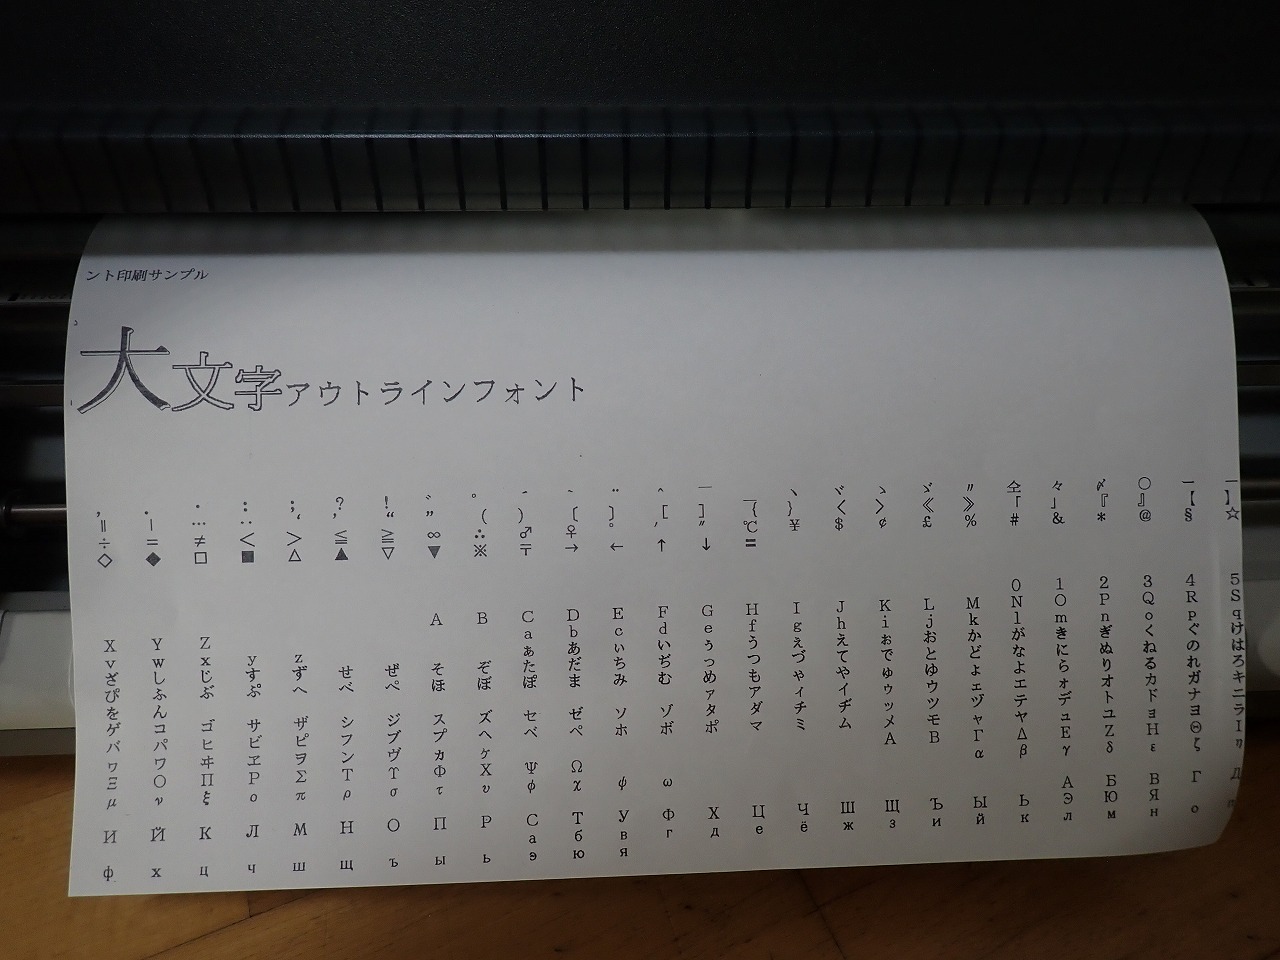 ント印刷サンプル
大文字アウトラインフォント
， ． ・ ： ； ？ ！ ゛ ゜ ´ ｀ ¨ ＾ ￣ ＿ ヽ ヾ ゝ ゞ 〃 仝 々 〆 〇 ー ―
‖ ｜ … ‥ ‘ ’ “ ” （ ） 〔 〕 ［ ］ ｛ ｝ 〈 〉 《 》 「 」 『 』 【 】
÷ ＝ ≠ ＜ ＞ ≦ ≧ ∞ ∴ ♂ ♀ ° ′ ″ ℃ ￥ ＄ ￠ ￡ ％ ＃ ＆ ＊ ＠ § ☆
◇ ◆ □ ■ △ ▲ ▽ ▼ ※ 〒 → ← ↑ ↓ 〓
0 1 2 3 4 5
A B C D E F G H I J K L M N O P Q R S
X Y Z a b c d e f g h i j k l m n o p q
v w x y z ぁ あ ぃ い ぅ う ぇ え ぉ お か が き ぎ く ぐ け
ざ し じ す ず せ ぜ そ ぞ た だ ち ぢ っ つ づ て で と ど な に ぬ ね の は
ぴ ふ ぶ ぷ へ べ ぺ ほ ぼ ぽ ま み む め も ゃ や ゅ ゆ ょ よ ら り る れ ろ
を ん ァ ア ィ イ ゥ ウ ェ エ ォ オ カ ガ キ
ゲ コ ゴ サ ザ シ ジ ス ズ セ ゼ ソ ゾ タ ダ チ ヂ ッ ツ ヅ テ デ ト ド ナ ニ
バ パ ヒ ビ ピ フ ブ プ ヘ ベ ペ ホ ボ ポ マ ミ ム メ モ ャ ヤ ュ ユ ョ ヨ ラ
ヮ ワ ヰ ヱ ヲ ン ヴ ヵ ヶ Α Β Γ Δ Ε Ζ Η Θ Ι
Ξ Ο Π Ρ Σ Τ Υ Φ Χ Ψ Ω α β γ δ ε ζ η
μ ν ξ ο π ρ σ τ υ φ χ ψ ω А Б В Г Д
И Й К Л М Н О П Р С Т У Ф Х Ц Ч Ш Щ Ъ Ы Ь Э Ю Я
а б в г д е ё ж з и й к л м н о п
ф х ц ч ш щ ъ ы ь э ю я